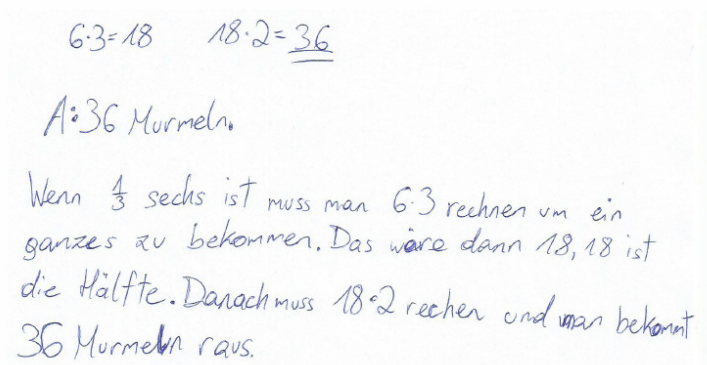 6·3=18 18·2=36
A: 36 Murmeln.
Wenn 1/3 sechs ist muss man 6·3 rechnen um ein
ganzes zu bekommen. Das wäre dann 18, 18 ist
die Hälfte. Danach muss 18·2 rechen und man bekommt
36 Murmeln raus.